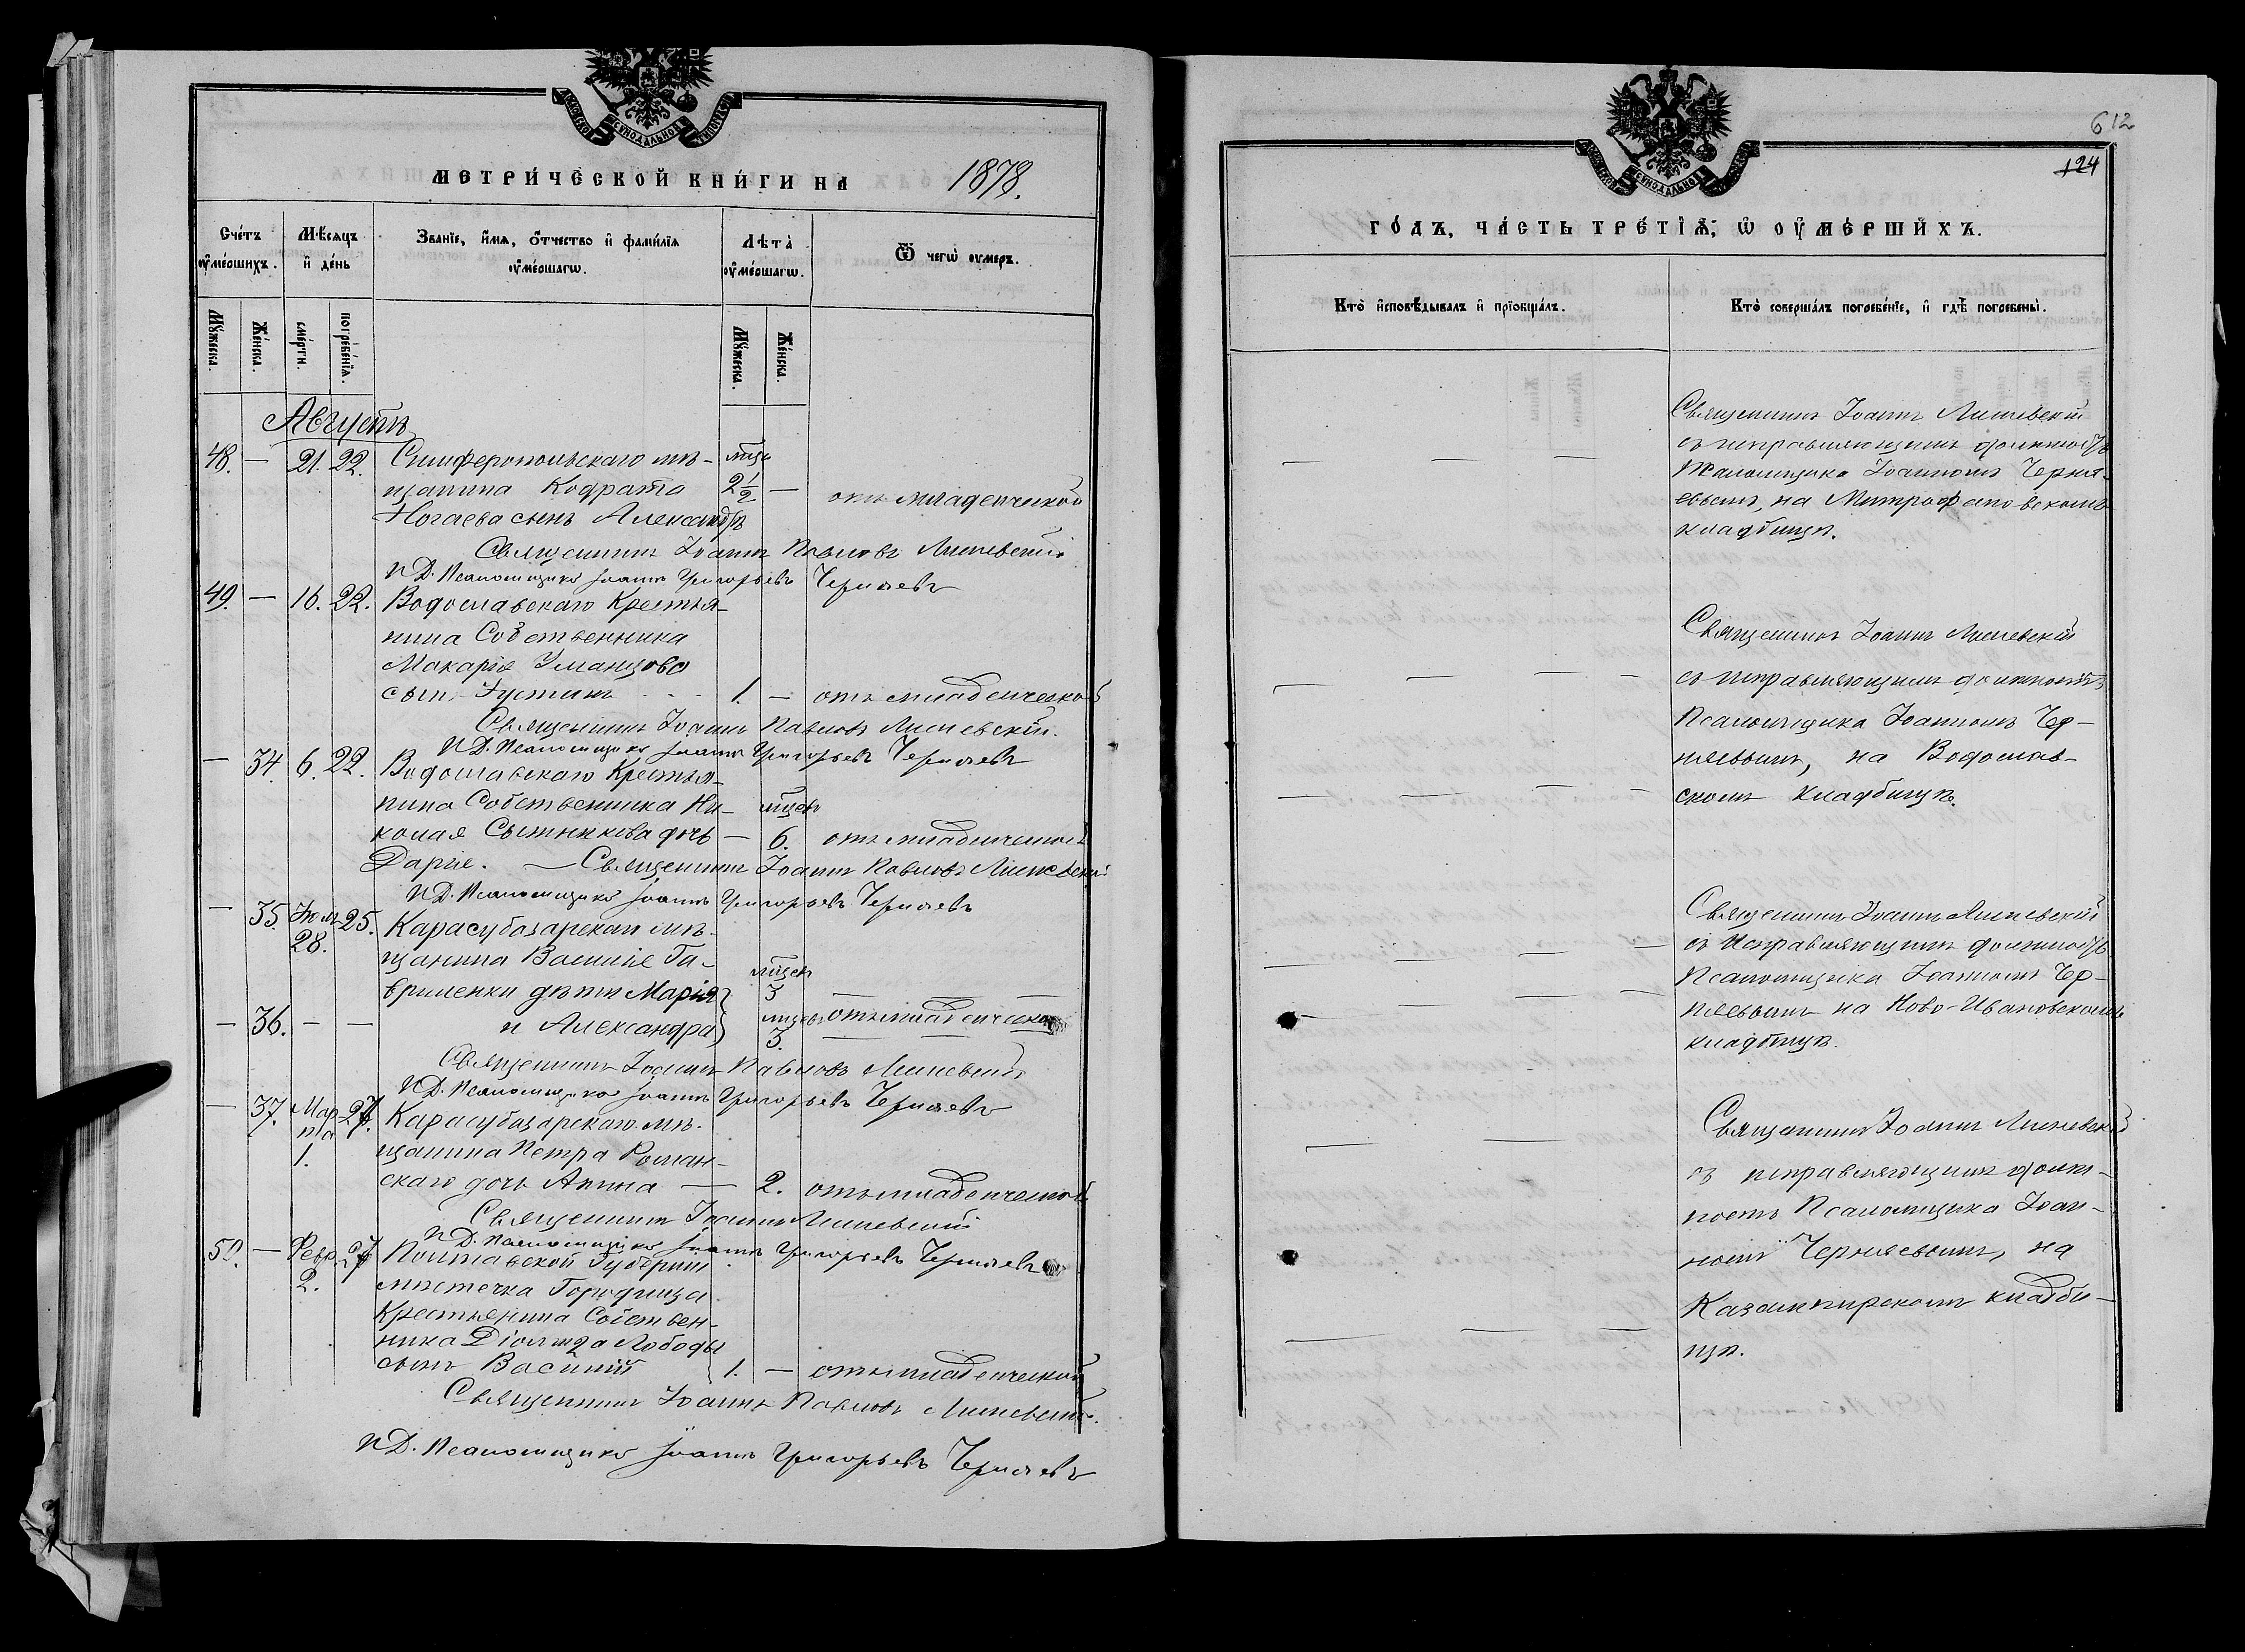 МЕТРИ́ЧЕСКОЙ КНИ́ГИ НА 1878.
Сче́тъ ᲂу҆ме́ршихъ.
Мѣ́сяцъ и҆ де́нь
Зва́нїе, и҆́мѧ, ѻ҆́тчество и҆ фами́лїѧ ᲂу҆ме́ршагѡ.
Лѣ́та ᲂу҆ме́ршагѡ.
Ѿ чегѡ̀ ᲂу҆́меръ.
Мꙋ́жеска.
Же́нска.
сме́рти.
погребе́нїѧ.
Мꙋ́жеска.
Же́нска.
Августъ
48. — 21. 22. Симферопольскаго мѣ- мѣся
щанина Кодрата 2½ — отъ младенческой
Ногаева сынъ Александръ
Священникъ Іоаннъ Павловъ
И.Д. Псаломщика Іоаннъ Григорьевъ Черняевъ
49. — 16. 22. Водославскаго Крестья-
нина Собственника
Макарія Уманцова
сынъ Іустинъ 1. — отъ младенческой
Священникъ Іоаннъ Павловъ
И.Д. Псаломщика Іоаннъ Григорьевъ Черняевъ
— 34. 6. 22. Водославскаго Крестья-
нина Собственника Ни- мѣсяц
колая дочь — 6. отъ младенческой
Дарія. — Священникъ Іоаннъ Павловъ
И.Д. Псаломщика Іоаннъ Григорьевъ Черняевъ
— 35. Іюля 25. Карасубазарскаго мѣ-
28.
щанина Василія Га- мѣсяц
вриленки дѣти Марія 3 — —
— 36. — — и Александра 3. отъ младенческой
Священникъ Іоаннъ Павловъ
И.Д. Псаломщика Іоаннъ Григорьевъ Черняевъ
— 37. Мар- 27. Карасубазарскаго мѣ-
та
1. щанина Петра Роман-
скаго дочь Анна — 2. отъ младенческой
Священникъ Іоаннъ
И.Д. Псаломщика Іоаннъ Григорьевъ Черняевъ
50. — Февр. 27 Полтавской Губерніи
2. мѣстечка Городища
Крестьянина Собствен-
ника Діомида Лободы
сынъ Василій 1. — отъ младенческой
Священникъ Іоаннъ Павловъ
И.Д. Псаломщика Іоаннъ Григорьевъ Черняевъ
612
124
ГО́ДЪ, ЧА́СТЬ ТРЕ́ТЇѦ, Ѡ҆ ОУ҆МЕ́РШИХЪ.
Кто̀ и҆сповѣ́дывалъ и҆ прїобща́лъ.
Кто̀ соверша́лъ погребе́нїе, и҆ гдѣ̀ погребены̀.
Священникъ Іоаннъ
съ исправляющимъ должность
Псаломщика Іоанномъ Черня-
евымъ, на Митрофановскомъ
кладбищѣ.
Священникъ Іоаннъ
съ исправляющимъ должность
Псаломщика Іоанномъ Чер-
няевымъ, на Водослав-
скомъ кладбищѣ.
Священникъ Іоаннъ
съ Исправляющимъ должность
Псаломщика Іоанномъ Чер-
няевымъ на Ново-Ивановскомъ
кладбищѣ.
Священникъ Іоаннъ
съ исправляющимъ долж-
ность Псаломщика Іоан-
номъ Черняевымъ, на
кладби-
щѣ.